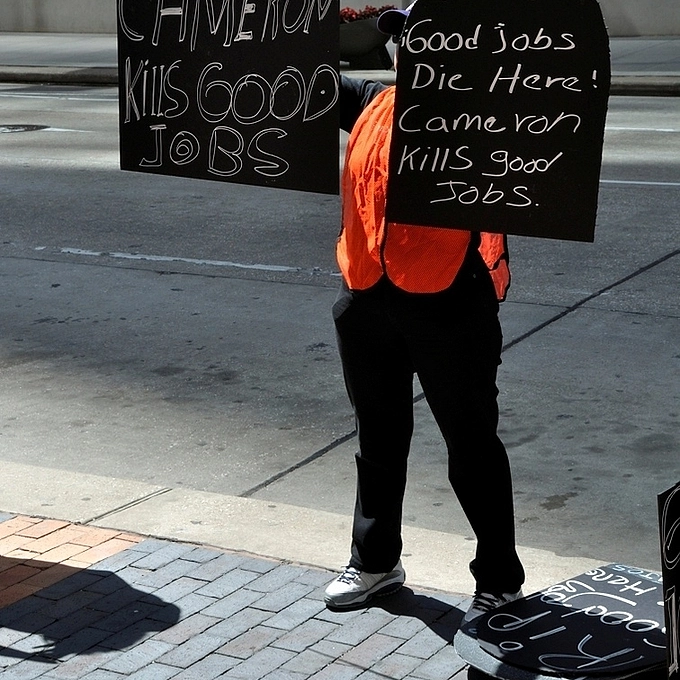 CAMERON
KillS GOOD
JOBS
Good jobs
Die Here!
Cameron
Kills good
Jobs.
RIP
Good Jobs
Here